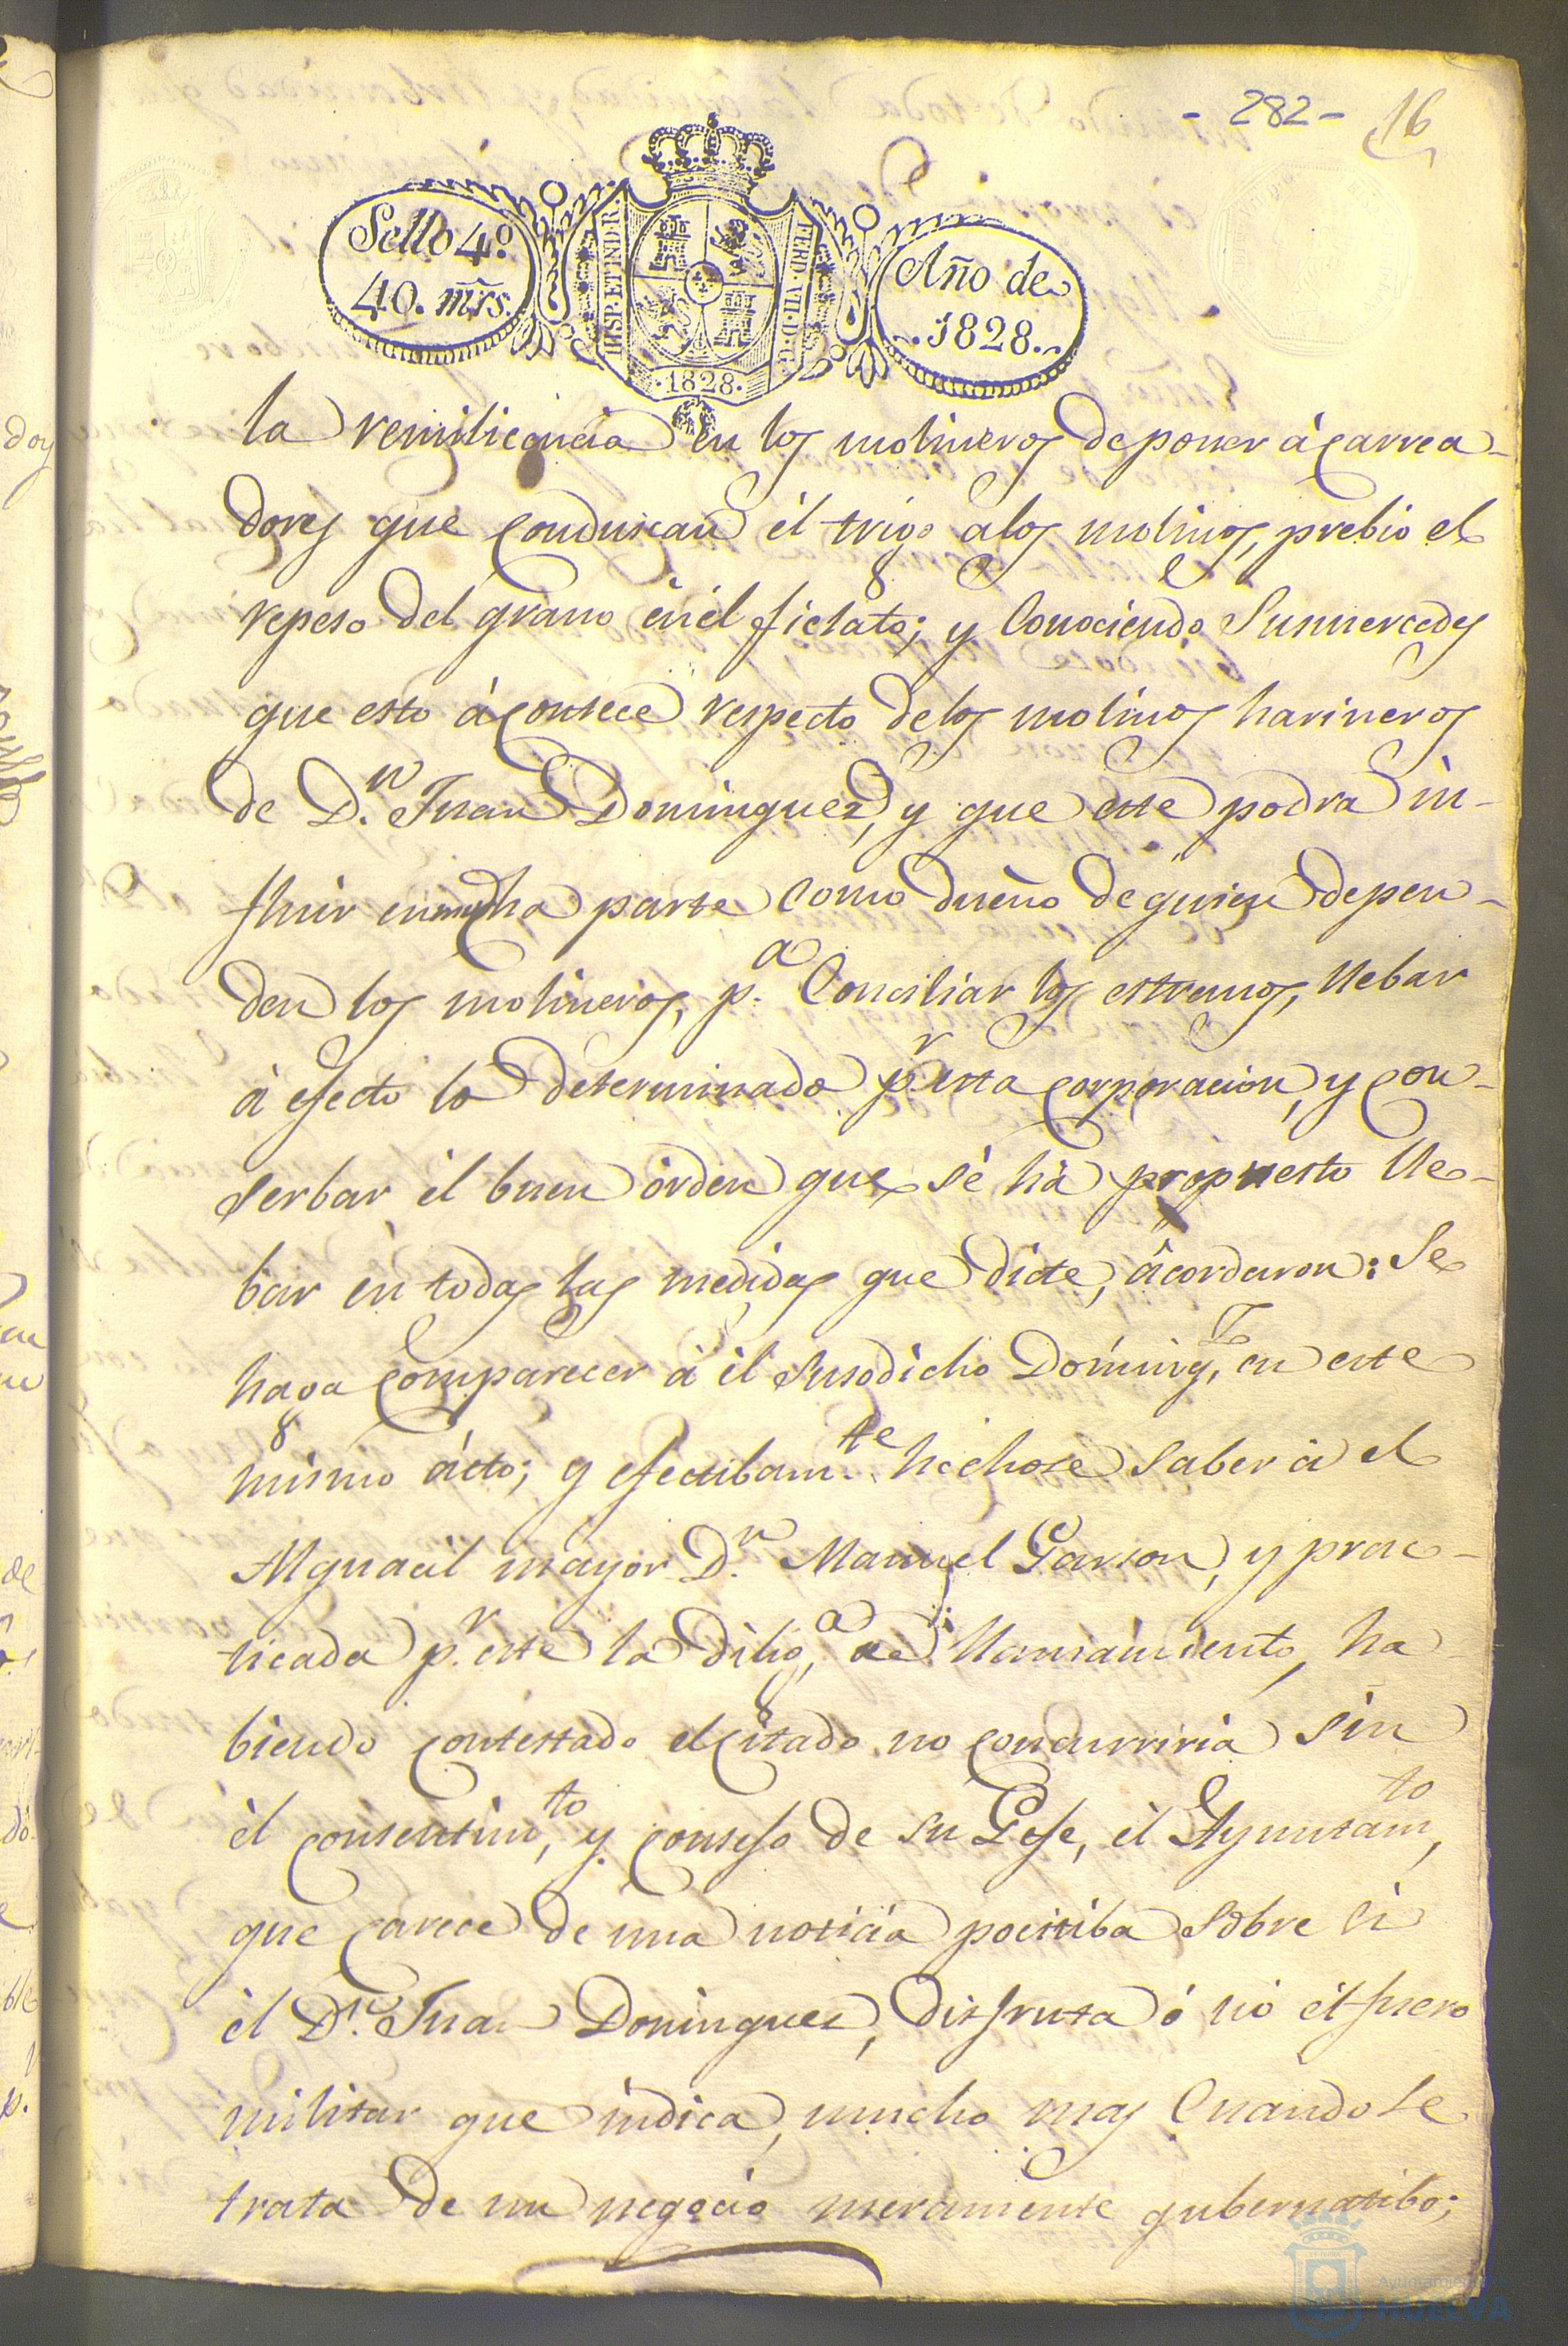 - 282 - 16
Sello 4º
40. mrs.
HISP. ET IND. R.
FERD. VII. D. G.
.1828.
Año de
1828.
la en los molineros de poner ácarrea-
dores que conduscan él trigo alos molinos, prebio el
repeso del grano én él fielato; y Conociendo Sus mercedes
que esto ácontece respecto delos molinos harineros
de D.n Juan Dominguez, y que este podra in-
fluir en mucha parte Como dueño de quien depen-
den los molineros, p.a Conciliar los estremos, llebar
á efecto lo determinado p.r esta corporacion, y con-
serbar él buen órden que sé há propuesto lle-
bar én todas las medidas que dicte, ácordaron: Se
haga comparecer á él susodicho Doming.z en este
mismo ácto; y efectibam.te hichose saber á el
Alguacil mayor D.n Manuel Garson, y prac-
ticada p.r este la dilig.a de llamamiento, ha
biendo contestado el citado no concurriria sin
él consentim.to, y consejo de su Gefe, él Ayuntam.to,
que carece de una noticia pocitiba sobre si
él D.n Juan Dominguez, disfruta ó nó él fuero
militar que indica, mucho mas Cuando se
trata de un negocio meramente gubernatibo;
Ayuntamiento de
HUELVA